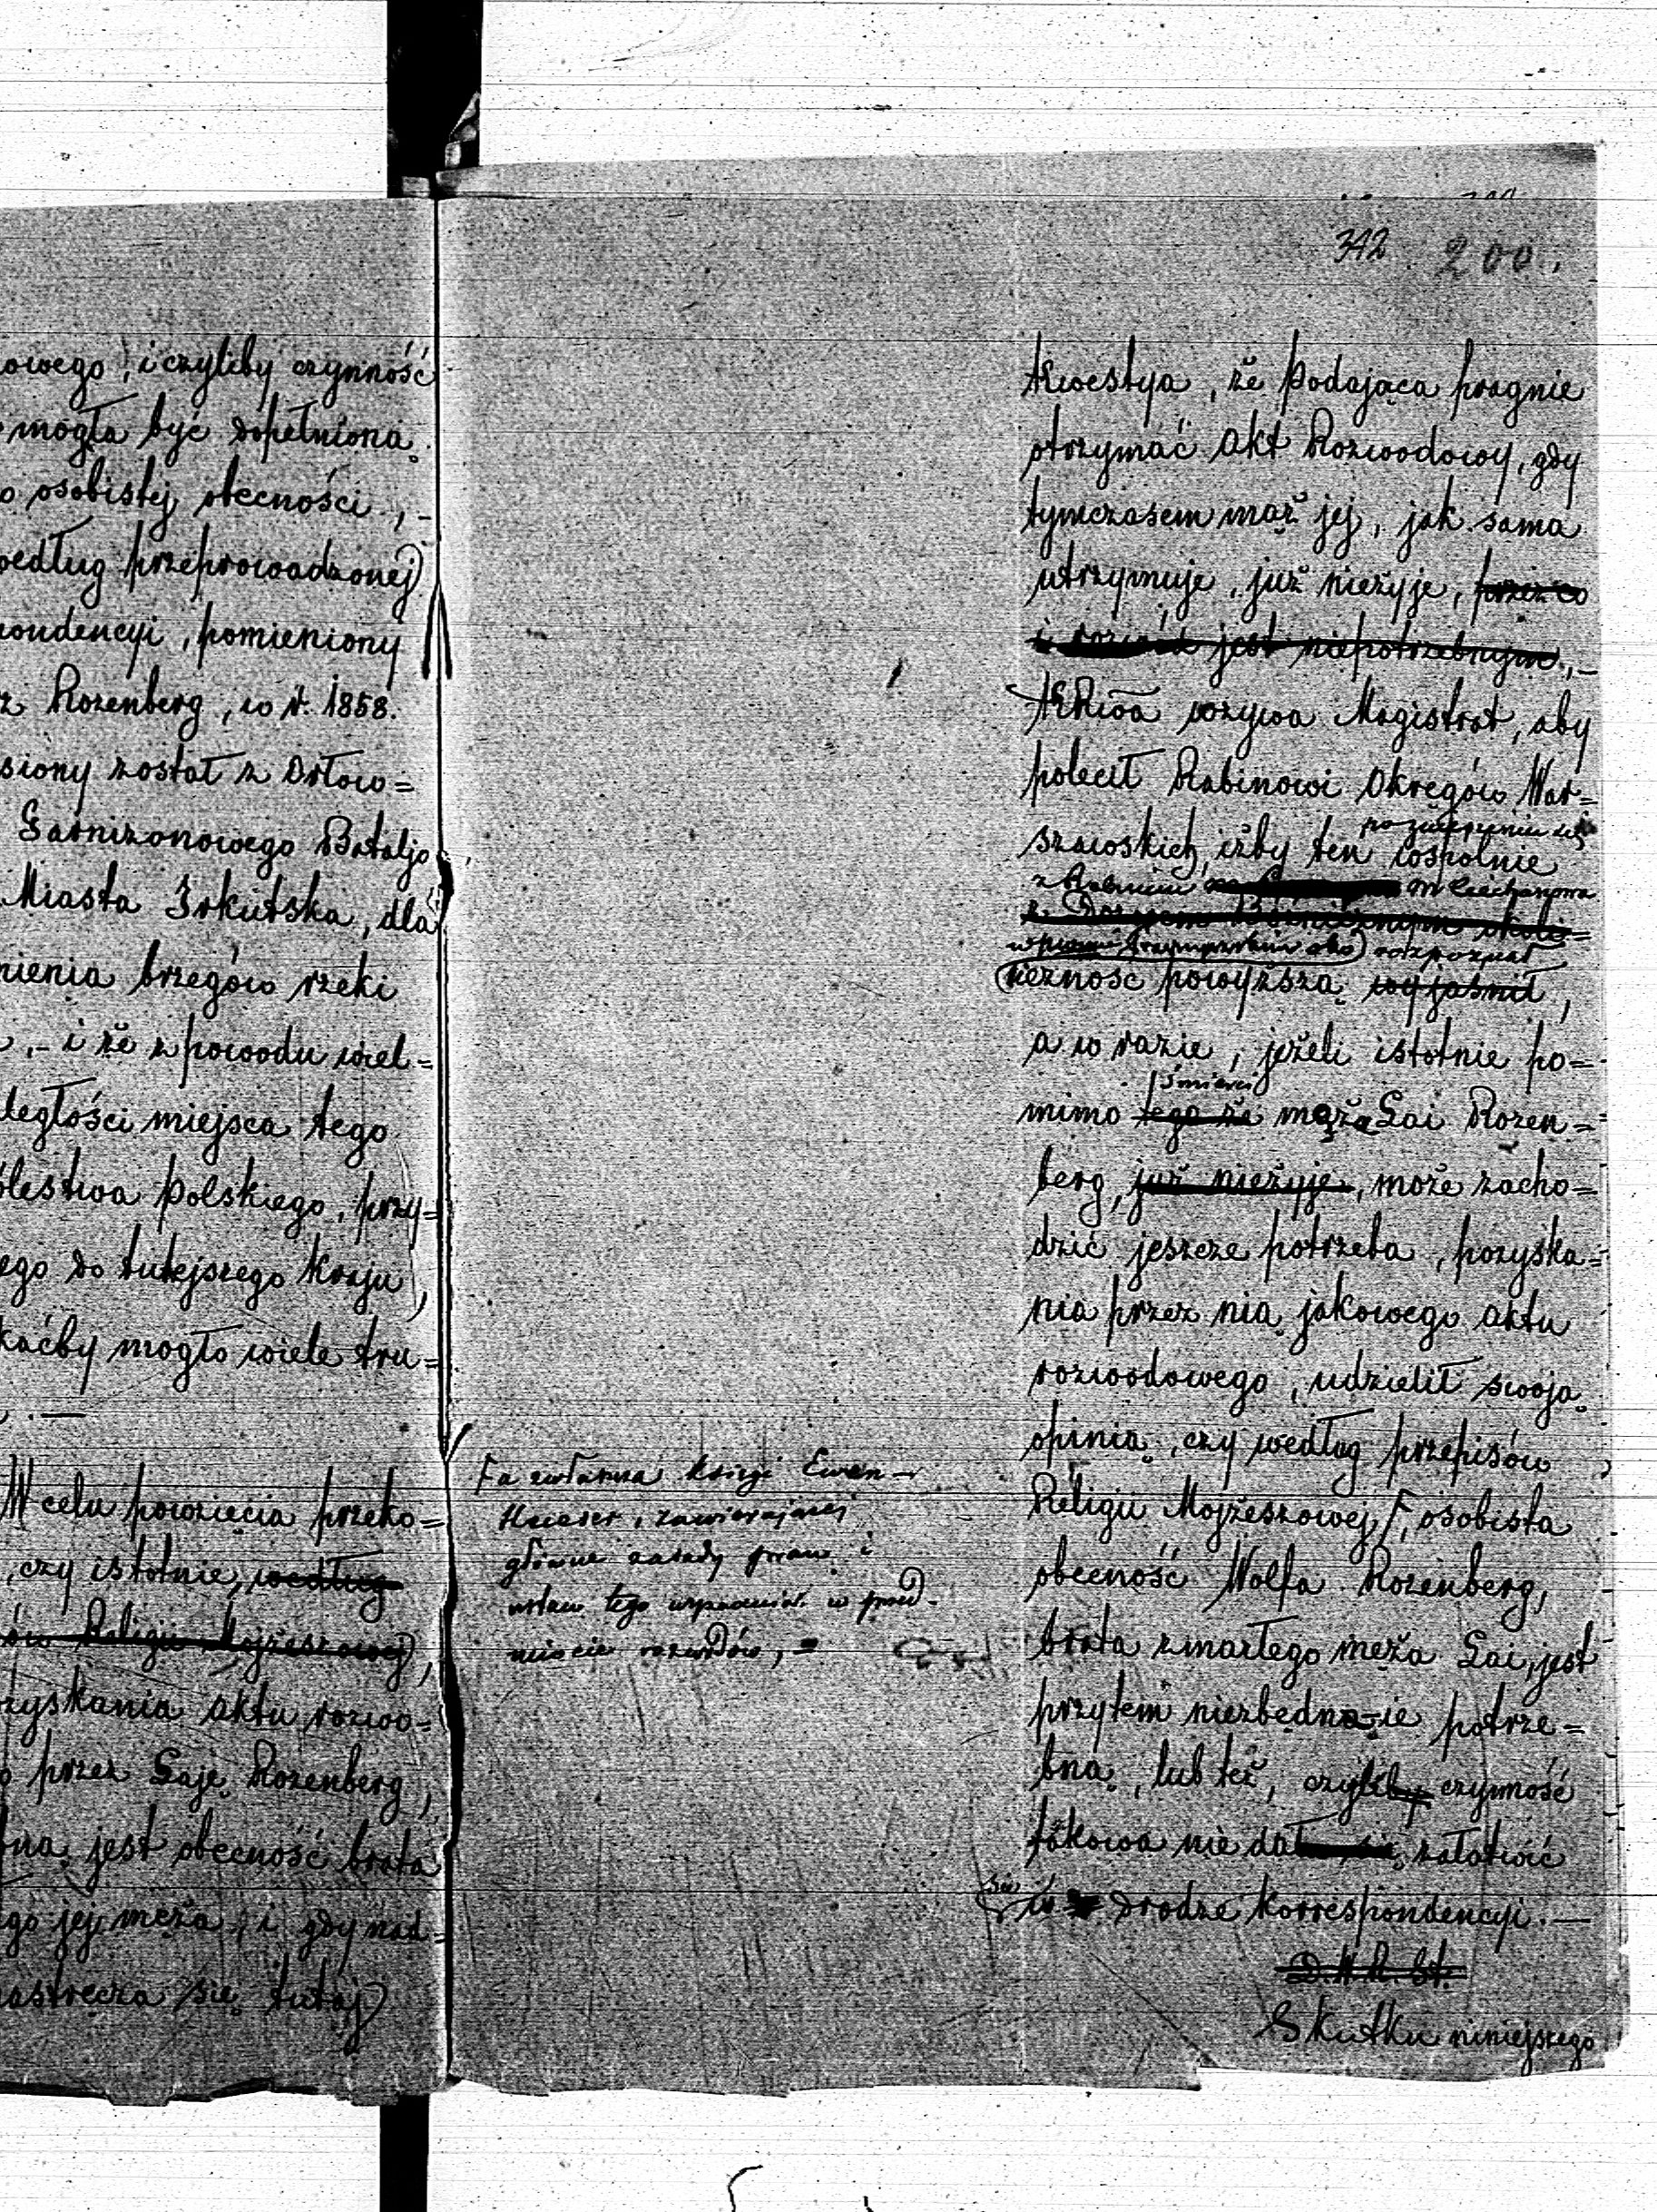 owego, i czyliby czynność
mogła być dopełnioną
osobistej obecności, –
według przeprowadzonej
pondencyi, pomieniony
z Rozenberg, w r. 1858.
siony został z Orłow=
Garnizonowego Batalјo
Miasta Irkutska, dla
nienia brzegów rzeki
– i że z powodu wiel=
ległości miejsca tego
ólestwa Polskiego, przy=
ego do tutejszego Kraju,
kaćby mogło wiele tru=
W celu powzięcia przeko=
, czy istotnie, według
ów Religii Mojżeszowej,
zyskania aktu rozwo=
przez Łaję Rozenberg,
bną jest obecność brata
go jej męża, i gdy nad=
astręcza się tutaj
a zwłaszcza księgi Ewen-
Haezer, zawierającej
główne zasady praw i
ustaw tego wyznania w przed-
miocie rozwodów, =
342 200.
Kwestya, że Podająca pragnie
otrzymać Akt Rozwodowy, gdy
tymczasem mąż jej, jak sama
utrzymuje, już nieżyje, przez co
i rozwód jest niepotrzebnym, –
wzywa Magistrat, aby
polecił Rabinowi Okręgów War=
po zniesieniu się
szawskich, iżby ten wspólnie
z Rabinem m Ciechanowa
z Dozorem Bóżniczym okoli=
rozpoznał
czność powyższą wyjaśnił,
a w razie, jeżeli istotnie po=
śmierci
mimo tego że męża Łai Rozen=
berg, już nieżyje, może zacho=
dzić jeszcze potrzeba, pozyska=
nia przez nią jakowego aktu
rozwodowego, udzielił swoją
opinią, czy według przepisów
Religii Mojżeszowej, osobista
obecność Wolfa Rozenberg,
brata zmarłego męża Łai, jest
przytem niezbędnie potrze=
bną, lub też, czyliby czynność
takowa nie da załatwić
się
w drodze korrespondencyi. —
Skutku niniejszego